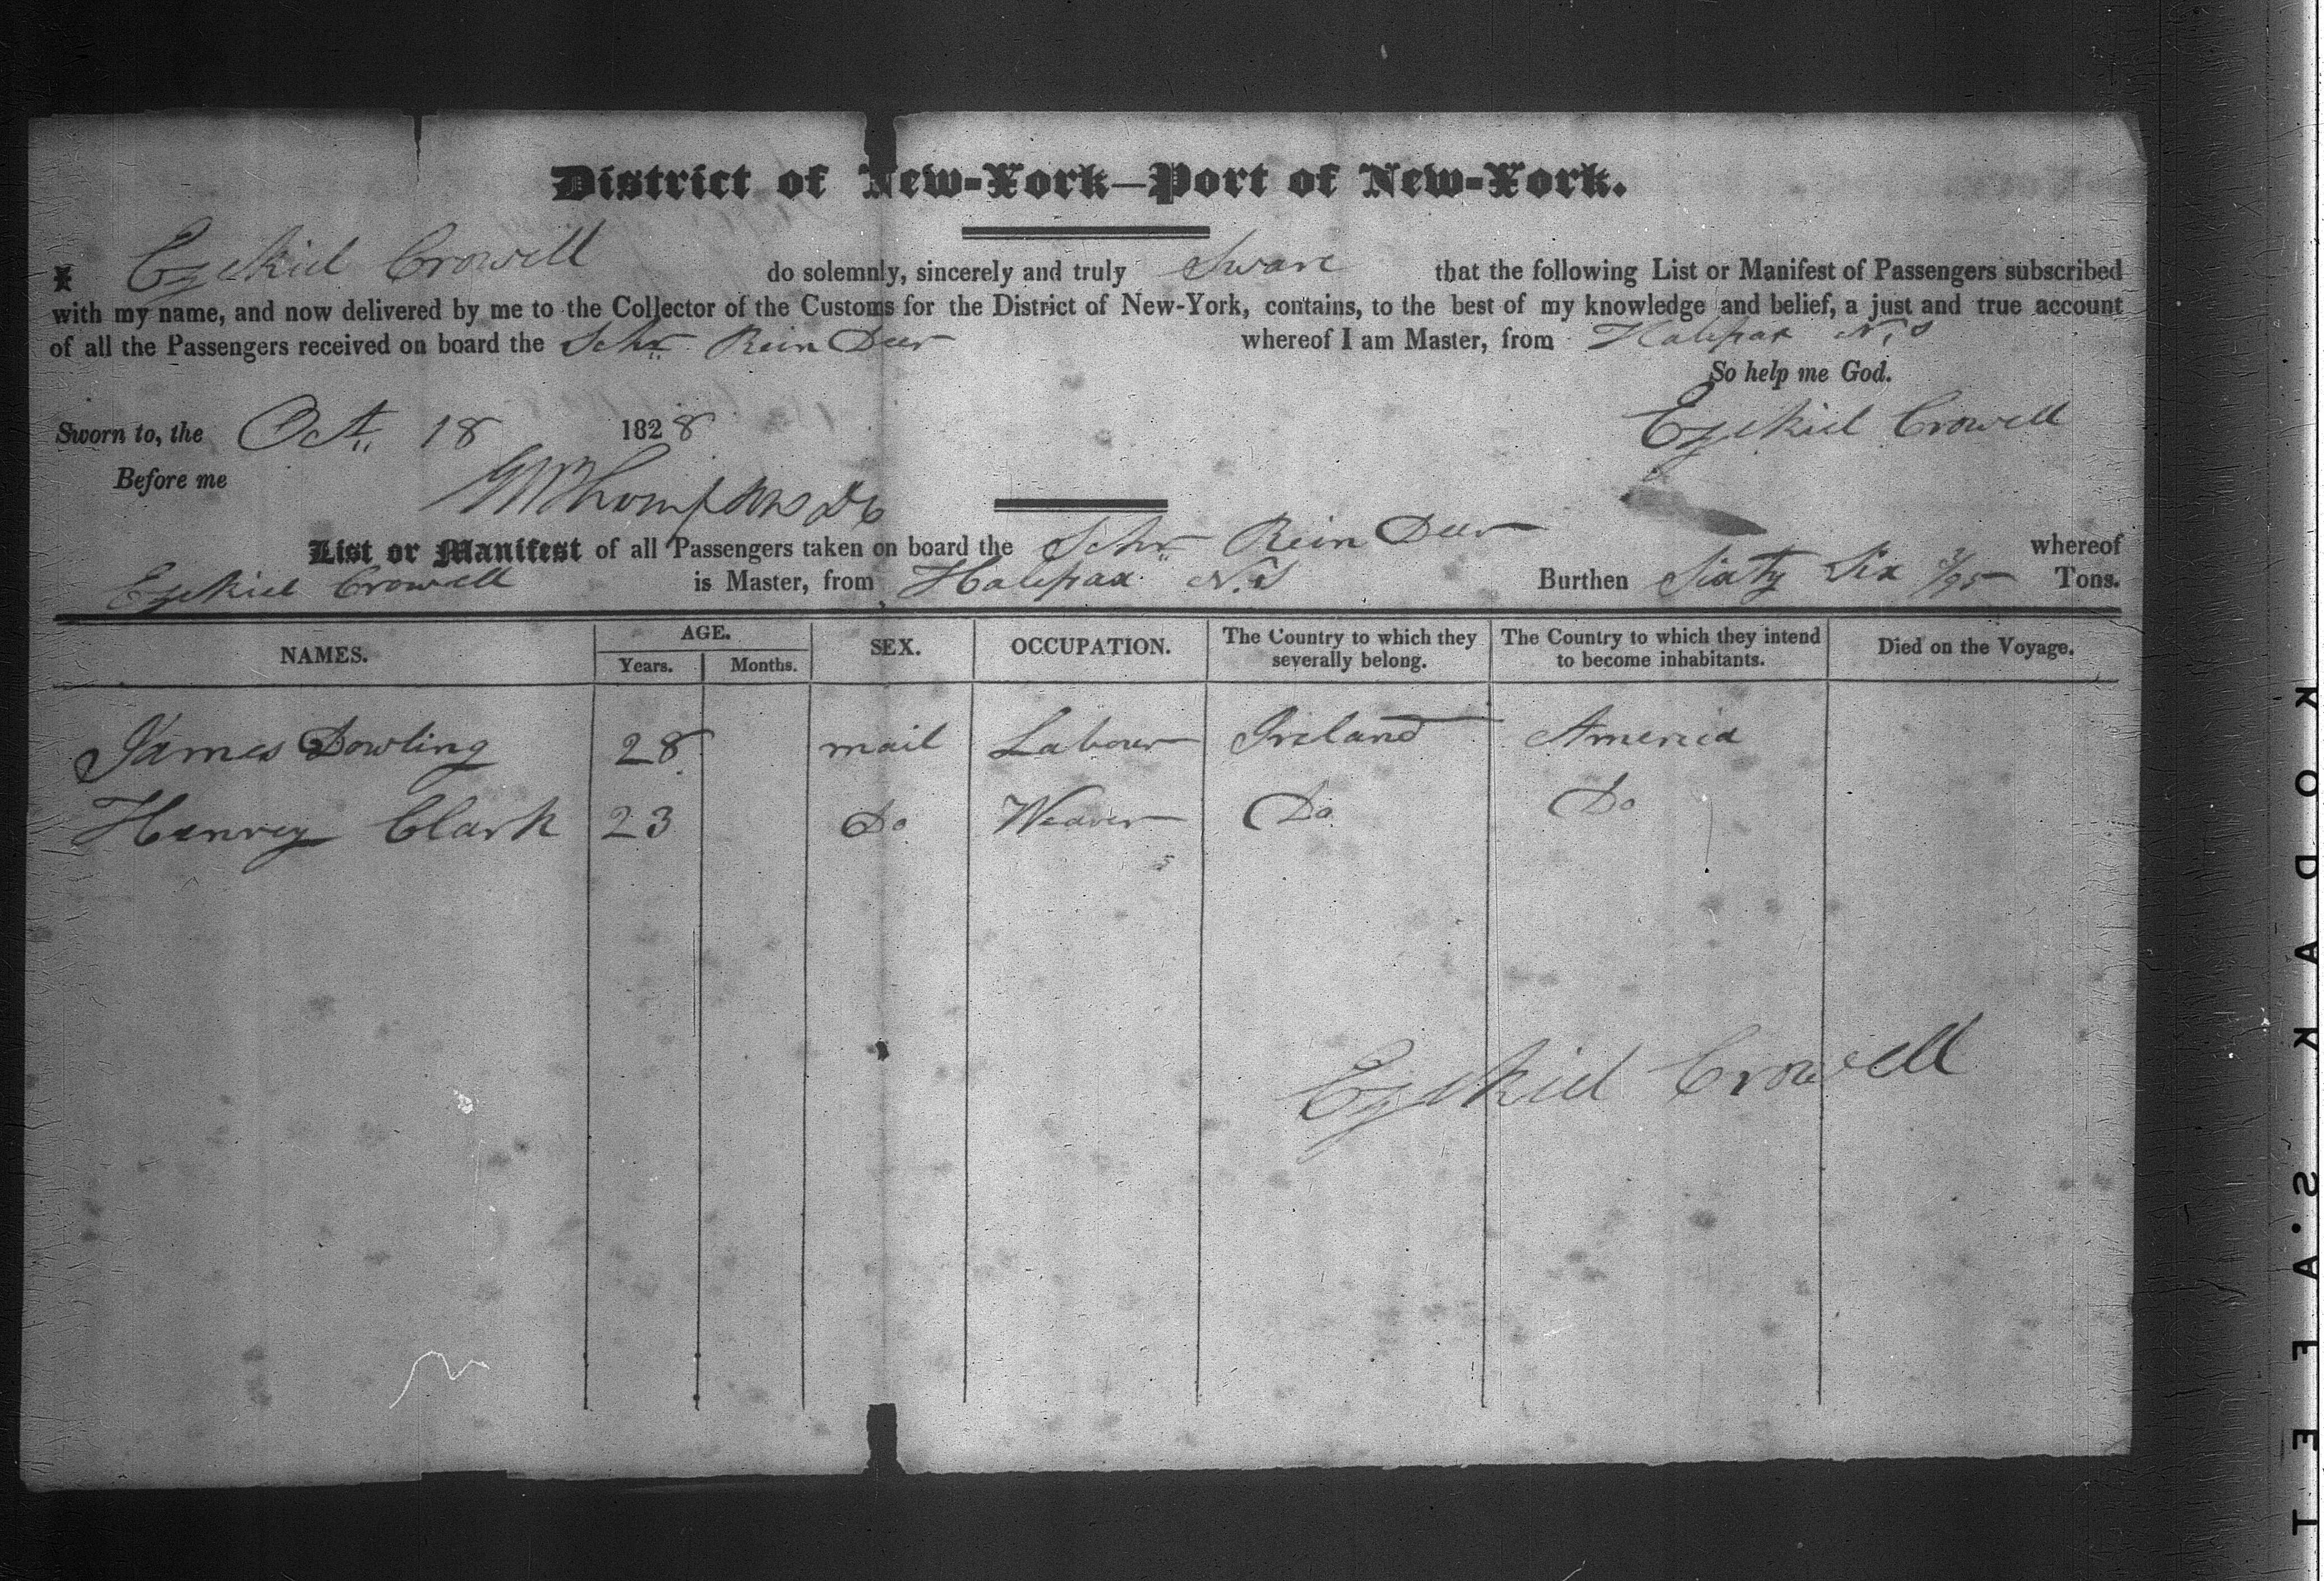 District of New-York—Port of New-York.
I Ezekiel Crowell do solemnly, sincerely and truly Sware that the following List or Manifest of Passengers subscribed
with my name, and now delivered by me to the Collector of the Customs for the District of New-York, contains, to the best of my knowledge and belief, a just and true account
of all the Passengers received on board the Schr Rein Deer whereof I am Master, from Halifax N.S
So help me God.
Sworn to, the Oct. 18 1828 Ezekiel Crowell
Before me
Thompson
List or Manifest of all Passengers taken on board the Schr Rein Deer whereof
Ezekiel Crowell is Master, from Halifax N.S Burthen Sixty Six /95 Tons.
NAMES. AGE. SEX. OCCUPATION. The Country to which they severally belong. The Country to which they intend to become inhabitants. Died on the Voyage.
Years. Months.
James Dowling 28 mail Labour Ireland America
Hanrey Clark 23 Do Weaver Do Do
Ezekiel Crowell